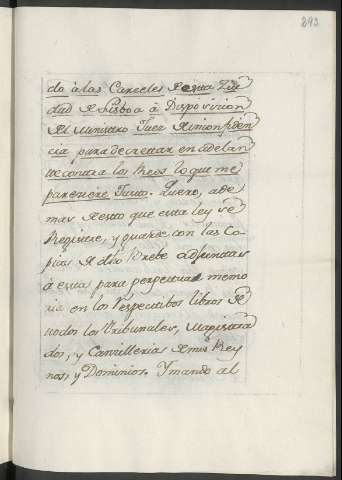 293
do à las Carceles de esta Ziu
dad de Lisboa à Disposicion
del Ministro Juez de inconfiden
cia para decrettar en adelan
tte contra los Reos lo que me
pareciere Justo. Quiero, ade
mas de esto que esta ley se
Registre, y guarde con las Co
pias de dho Brebe adjuntas
à esta para perpetua memo
ria en los respectibos libros de
todos los tribunales, Magistra
dos, y Canzillerias de mis Rey
nos, y Dominios. Y mando al